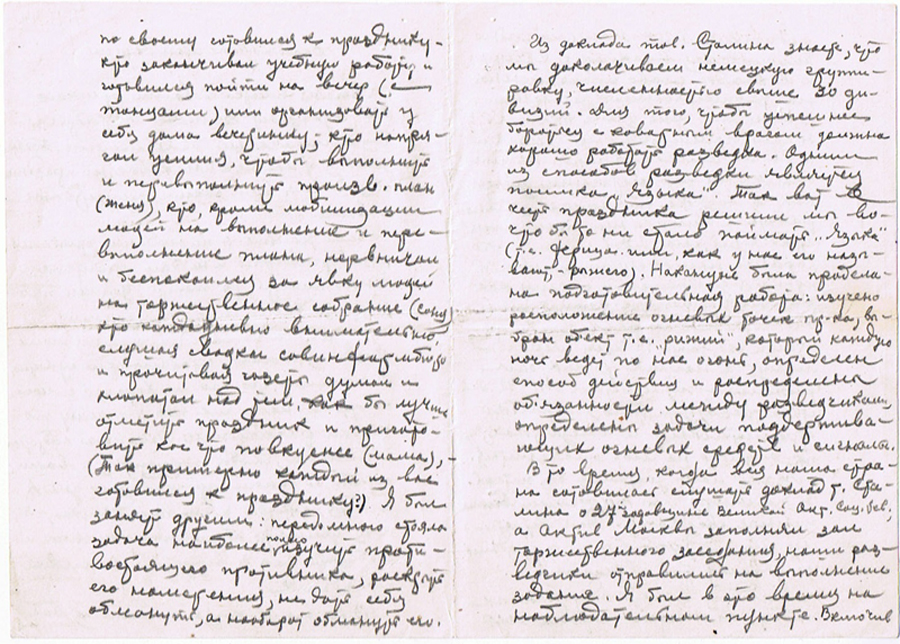 по своему готовился к празднику -
кто заканчивал учебную работу и
готовился пойти на вечер (с
танцами) или организовать у
себя дома вечеринку; кто напря-
гал усилия, чтобы выполнить
и перевыполнить произв. план
(Женя), кто, кроме мобилизации
людей на выполнение и пере-
выполнение плана, нервничал
и беспокоился за явку людей
на торжественное собрание
кто каждодневно внимательно
слушал сводки совинформбюро
и прочитывая газеты думал и
над тем, как бы лучше
отметить праздник и пригото-
вить кое что повкуснее (мама), -
(Так примерно каждый из вас
готовился к празднику?) Я был
занят другим: передо мною стояла
задача наиболее полно изучить проти-
востоящего противника, раскрыть
его намерения, не дать себя
обмануть, а наоборот обмануть его.
Из доклада тов. Сталина знаете, что
мы доколачиваем немецкую группи-
ровку, численностью свыше 30 ди-
визий. Для того, чтобы успешнее
бороться с коварным врагом должна
хорошо работать разведка. Одним
из способов разведки является
поимка "языка". Так вот в
честь праздника решили мы во-
что бы то ни стало поймать "языка"
(т.е. фрица или, как у нас его назы-
вают - рыжего). Накануне была продела-
на подготовительная работа: изучено
расположение огневых точек пр-ка, вы-
бран обект т.е. "рыжий", который каждую
ночь ведет по нас огонь, определен
способ действия и распределены
обязанности между разведчиками,
определены задачи поддержива-
ющих огневых средств и сигналы.
В то время, когда вся наша стра-
на готовилась слушать доклад т. Ста-
лина о 27 годовщине Великой Окт. Соц. Рев.,
а актив Москвы заполнял зал
торжественного заседания, наши раз-
ведчики отправились на выполнение
задания. Я был в это время на
наблюдательном пункте. Включив